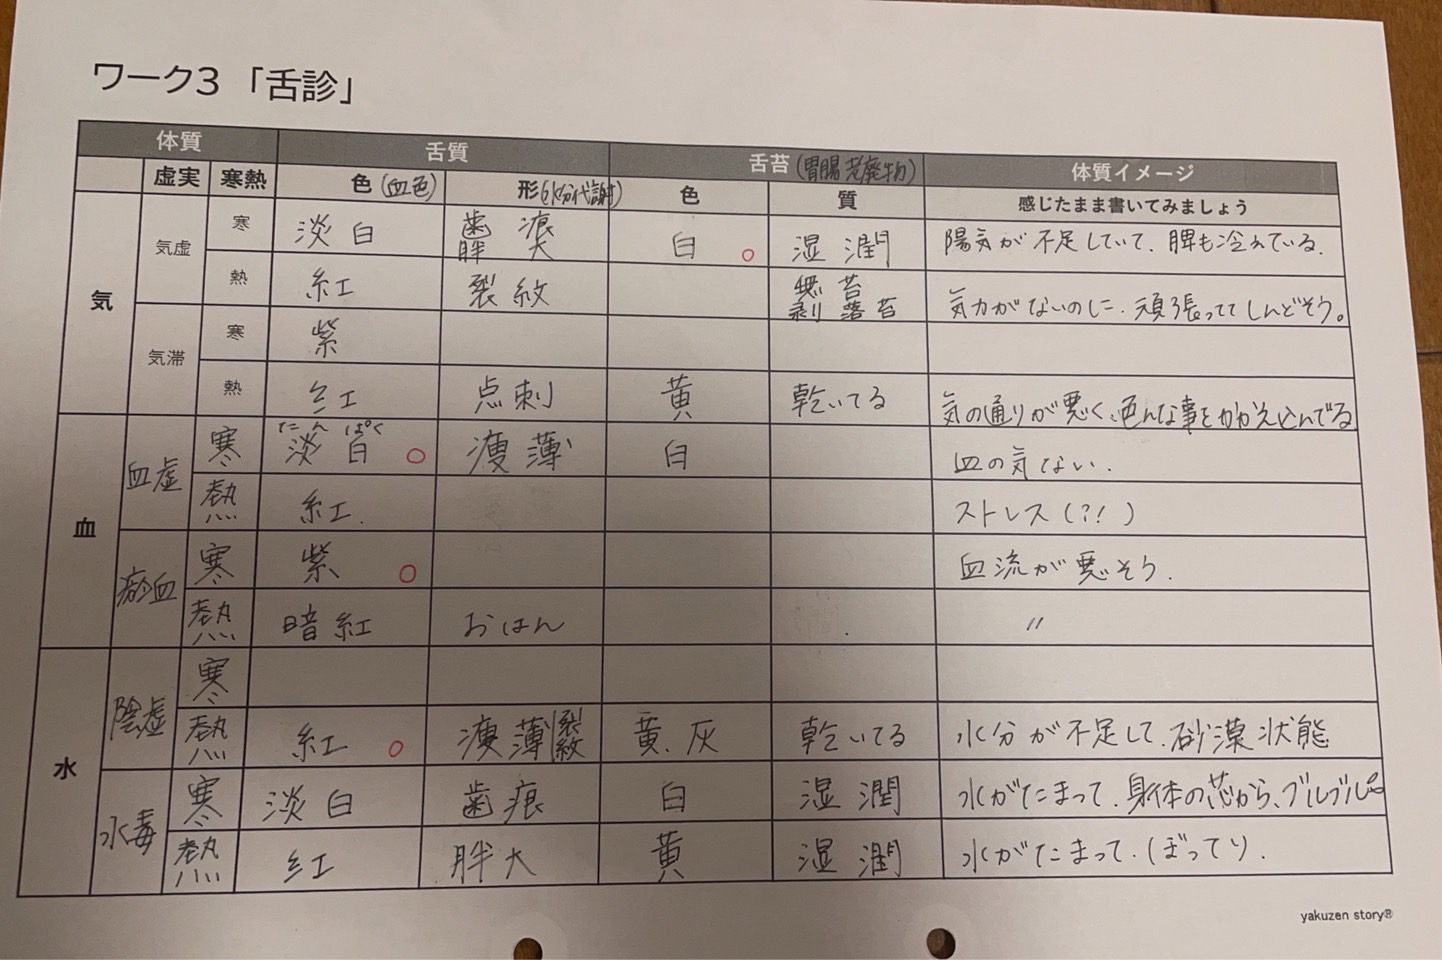 ワーク3 「舌診」
体質 舌質 舌苔(胃腸 老廃物) 体質イメージ
虚実 寒熱 色(血色) 形(水分代謝) 色 質 感じたまま書いてみましょう
気 気虚 寒 淡白 歯痕 胖大 白 湿潤 陽気が不足していて、脾も冷えている.
熱 紅 裂紋 無苔 剥落苔 気力がないのに、頑張っててしんどそう。
気滞 寒 紫
熱 紅 点刺 黄 乾いてる 気の通りが悪く、色んな事をかかえ込んでる
血 血虚 寒 淡白 たんぱく 痩薄 白 血の気ない.
熱 紅. ストレス(?!)
瘀血 寒 紫 血流が悪そう.
熱 暗紅 おはん 〃
水 陰虚 寒
熱 紅 痩薄 裂紋 黄.灰 乾いてる 水分が不足して、砂漠状態
水毒 寒 淡白 歯痕 白 湿潤 水がたまって、身体の芯から、ブルブル
熱 紅 胖大 黄 湿潤 水がたまって、ぼってり.
yakuzen story®